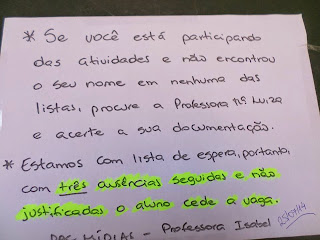 * Se você está participando
das atividades e não encontrou
o seu nome em nenhuma das
listas, procure a Professora Mª Luiza
e acerte a sua documentação.
* Estamos com lista de espera, portanto,
com três ausências seguidas e não
justificadas o aluno cede a vaga.
MÍDIAS - Professora Isabel